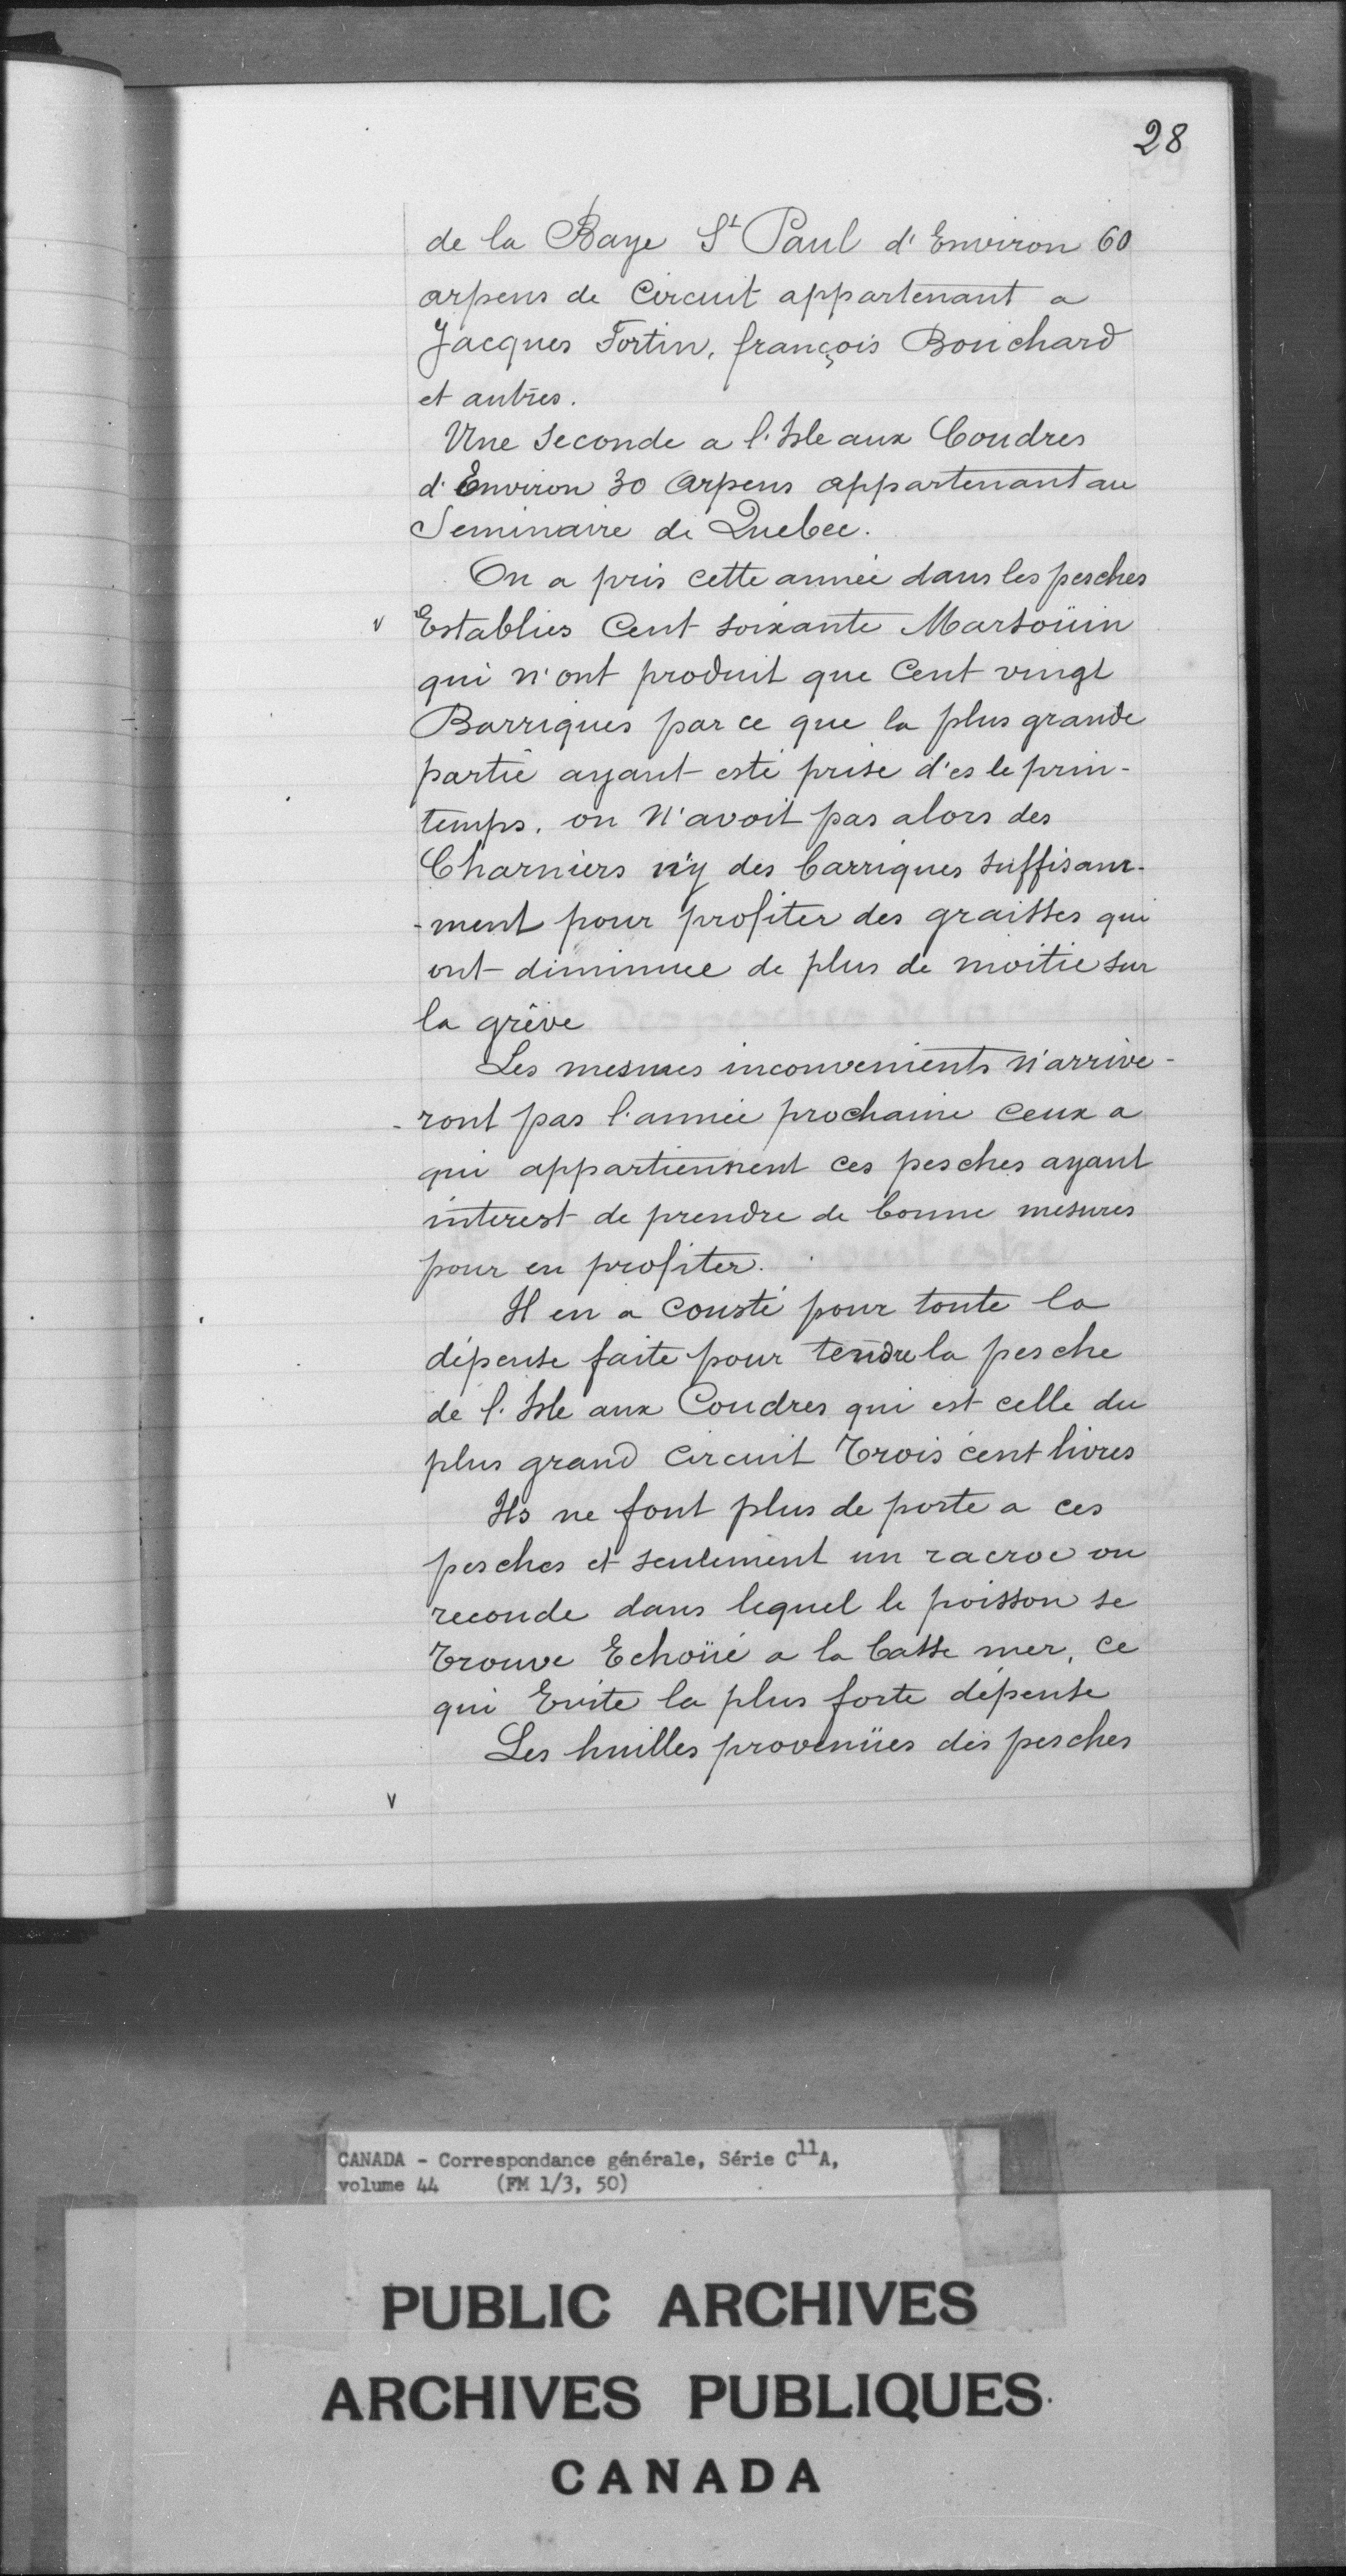 28
de la Baye St Paul d'Environ 60
arpens de Circuit appartenant a
Jacques Fortin, françois Bouchard
et autres.
Une seconde a l'Isle aux Coudres
d'Environ 30 arpens appartenant au
Seminaire de Quebec.
On a pris cette année dans les pesches
v Establies Cent soixante Marsoüin
qui n'ont produit que Cent vingt
Barriques par ce que la plus grande
partie ayant esté prise d'es le prin-
temps, on N'avoit pas alors des
Charniers n'y des barriques suffisam-
-ment pour profiter des graisses qui
ont diminuee de plus de moitie sur
la grêve
Les mesmes inconvenients N'arrive-
-ront pas l'année prochaine ceux a
qui appartiennent ces pesches ayant
interest de prendre de bonne mesures
pour en profiter.
Il en a cousté pour toute la
dépense faite pour tendre la pesche
de l'Isle aux Coudres qui est celle du
plus grand circuit Trois cent livres
Ils ne font plus de porte a ces
pesches et seulement un racroc ou
reconde dans lequel le poisson se
Trouve Echoüé a la basse mer, ce
qui Evite la plus forte dépense
Les huilles provenües des pesches
v
CANADA - Correspondance générale, Série C11A,
volume 44 (FM 1/3, 50)
PUBLIC ARCHIVES
ARCHIVES PUBLIQUES
CANADA